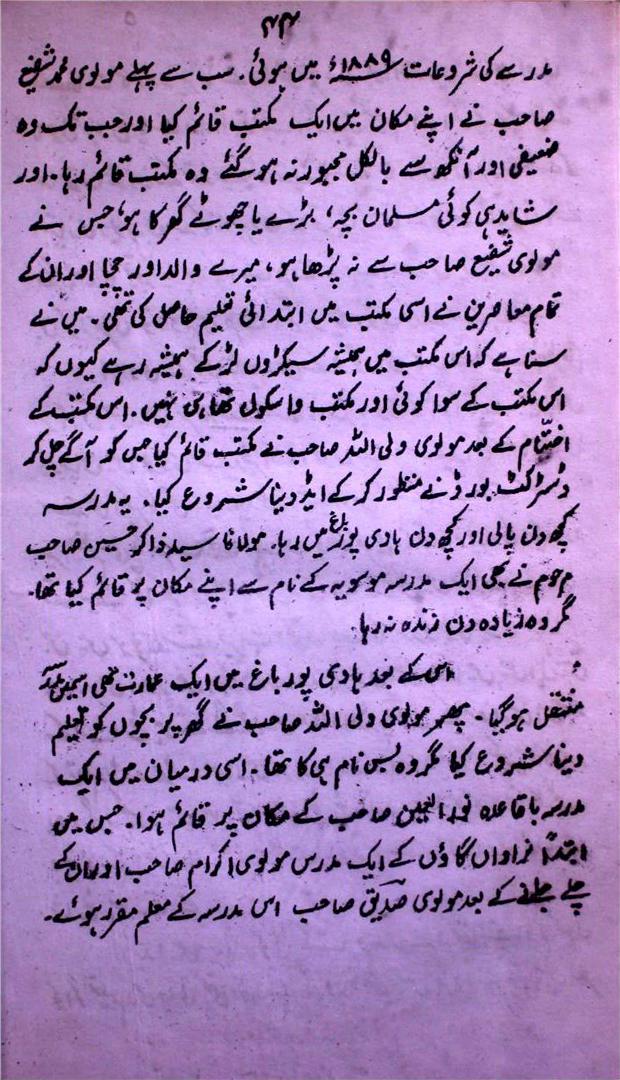 ۴۴
مدرسے کی شروعات ۱۸۸۹ء میں ہوئی۔ سب سے پہلے مولوی محمد شفیع
صاحب نے اپنے مکان میں ایک مکتب قائم کیا اور جب تک وہ
ضعیفی اور آنکھ سے بالکل مجبور نہ ہوگئے وہ مکتب قائم رہا۔ اور
شاید ہی کوئی مسلمان بچہ، بڑے یا چھوٹے گھر کا ہو، جس نے
مولوی شفیع صاحب سے نہ پڑھا ہو، میرے والد اور چچا اور ان کے
تمام معاصرین نے اسی مکتب میں ابتدائی تعلیم حاصل کی تھی۔ میں نے
سنا ہے کہ اس مکتب میں ہمیشہ سیکڑوں لڑکے ہمیشہ رہے کیوں کہ
اس مکتب کے سوا کوئی اور مکتب و اسکول تھا ہی نہیں۔ اس مکتب کے
اختتام کے بعد مولوی ولی اللہ صاحب نے مکتب قائم کیا جس کو آگے چل کر
ڈسٹرکٹ بورڈ نے منظور کر کے ایڈ دینا شروع کیا۔ یہ مدرسہ
کچھ دن پالی اور کچھ دن ہادی پور باغ میں رہا۔ مولانا سید ذاکر حسین صاحب
مرحوم نے بھی ایک مدرسہ موسویہ کے نام سے اپنے مکان پر قائم کیا تھا۔
گر وہ زیادہ دن زندہ نہ رہا۔
اس کے بعد ہادی پور باغ میں ایک عمارت تھی اسمیں
منتقل ہوگیا۔ پھر مولوی ولی اللہ صاحب نے گھر پر بچوں کو تعلیم
دینا شروع کیا گر وہ بس نام ہی کا تھا۔ اسی درمیان میں ایک
مدرسہ باقاعدہ صاحب کے مکان پر قائم ہوا۔ جس میں
ابتداً فراواں گاؤں کے ایک مدرس مولوی اکرام صاحب اور ان کے
چلے جانے کے بعد مولوی صدیق صاحب اس مدرسہ کے معلم مقرر ہوئے۔